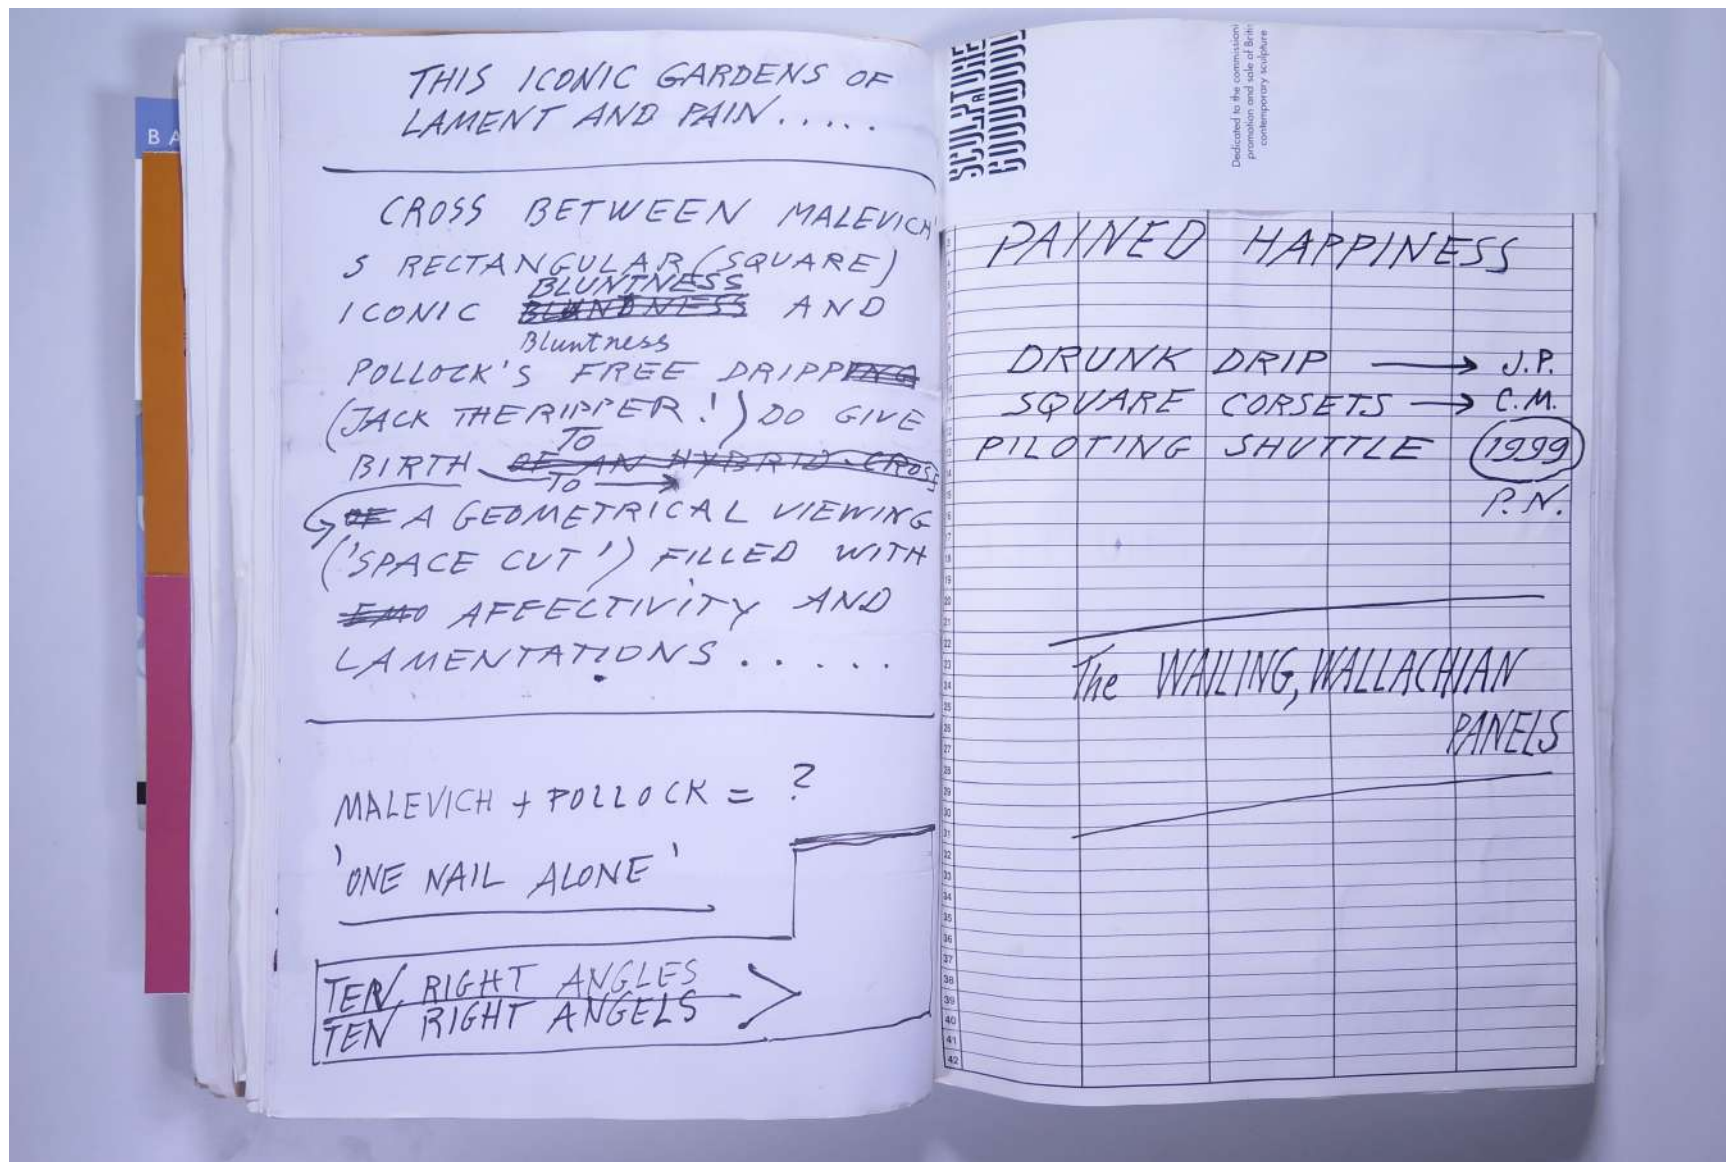 BA
THIS ICONIC GARDENS OF
LAMENT AND PAIN.....
CROSS BETWEEN MALEVICH'
S RECTANGULAR (SQUARE)
BLUNTNESS
ICONIC BLUNDNESS AND
Bluntness
POLLOCK'S FREE DRIPPING
(JACK THE RIPPER!) DO GIVE
TO
BIRTH OF AN HYBRID CROSS
TO
OF A GEOMETRICAL VIEWING
('SPACE CUT') FILLED WITH
EMO AFFECTIVITY AND
LAMENTATIONS.....
MALEVICH + POLLOCK = ?
'ONE NAIL ALONE'
TEN, RIGHT ANGLES
TEN RIGHT ANGELS
SCULPTURE
AT
GOODWOOD
Dedicated to the commissioni
promotion and sale of Briti
contemporary sculpture
PAINED HAPPINESS
DRUNK DRIP → J.P.
SQUARE CORSETS → C.M.
PILOTING SHUTTLE 1999
P.N.
The WAILING, WALLACHIAN
PANELS
3
4
5
6
7
8
9
10
11
12
13
14
15
16
17
18
19
20
21
22
23
24
25
26
27
28
29
30
31
32
33
34
35
36
37
38
39
40
41
42